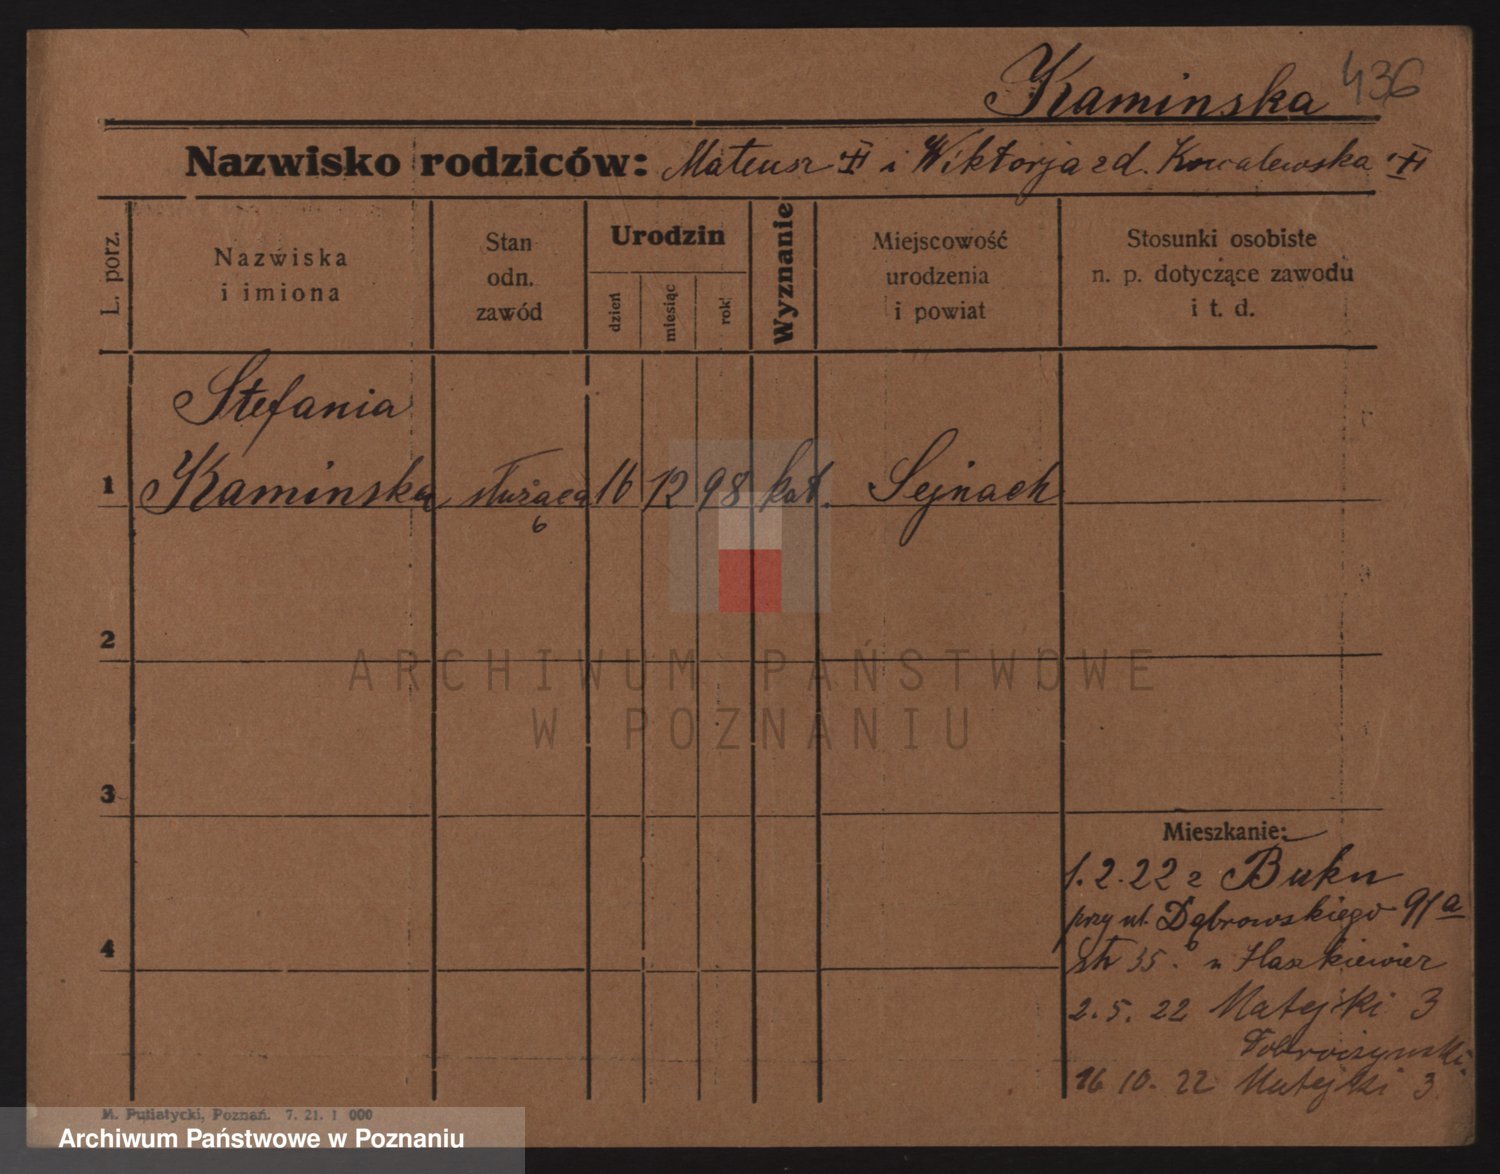 Kaminska 436
Nazwisko rodziców: Mateusz i Wiktorja zd. Kowalewska
L. porz.
Nazwiska
i imiona
Stan
odn.
zawód
Urodzin
dzień
miesiąc
rok
Wyznanie
Miejscowość
urodzenia
i powiat
Stosunki osobiste
n. p. dotyczące zawodu
i t. d.
Stefania
1 Kaminska służąca 16 12 98 kat. Sejnach
6
2
3
4
Mieszkanie:
1.2.22 z Buku
przy ul. Dąbrowskiego 91a
35.
2.5.22 Matejki 3
16 10. 22 Matejki 3
M. Putiatycki, Poznań. 7. 21. 1 000
ARCHIWUM PAŃSTWOWE
W POZNANIU
Archiwum Państwowe w Poznaniu